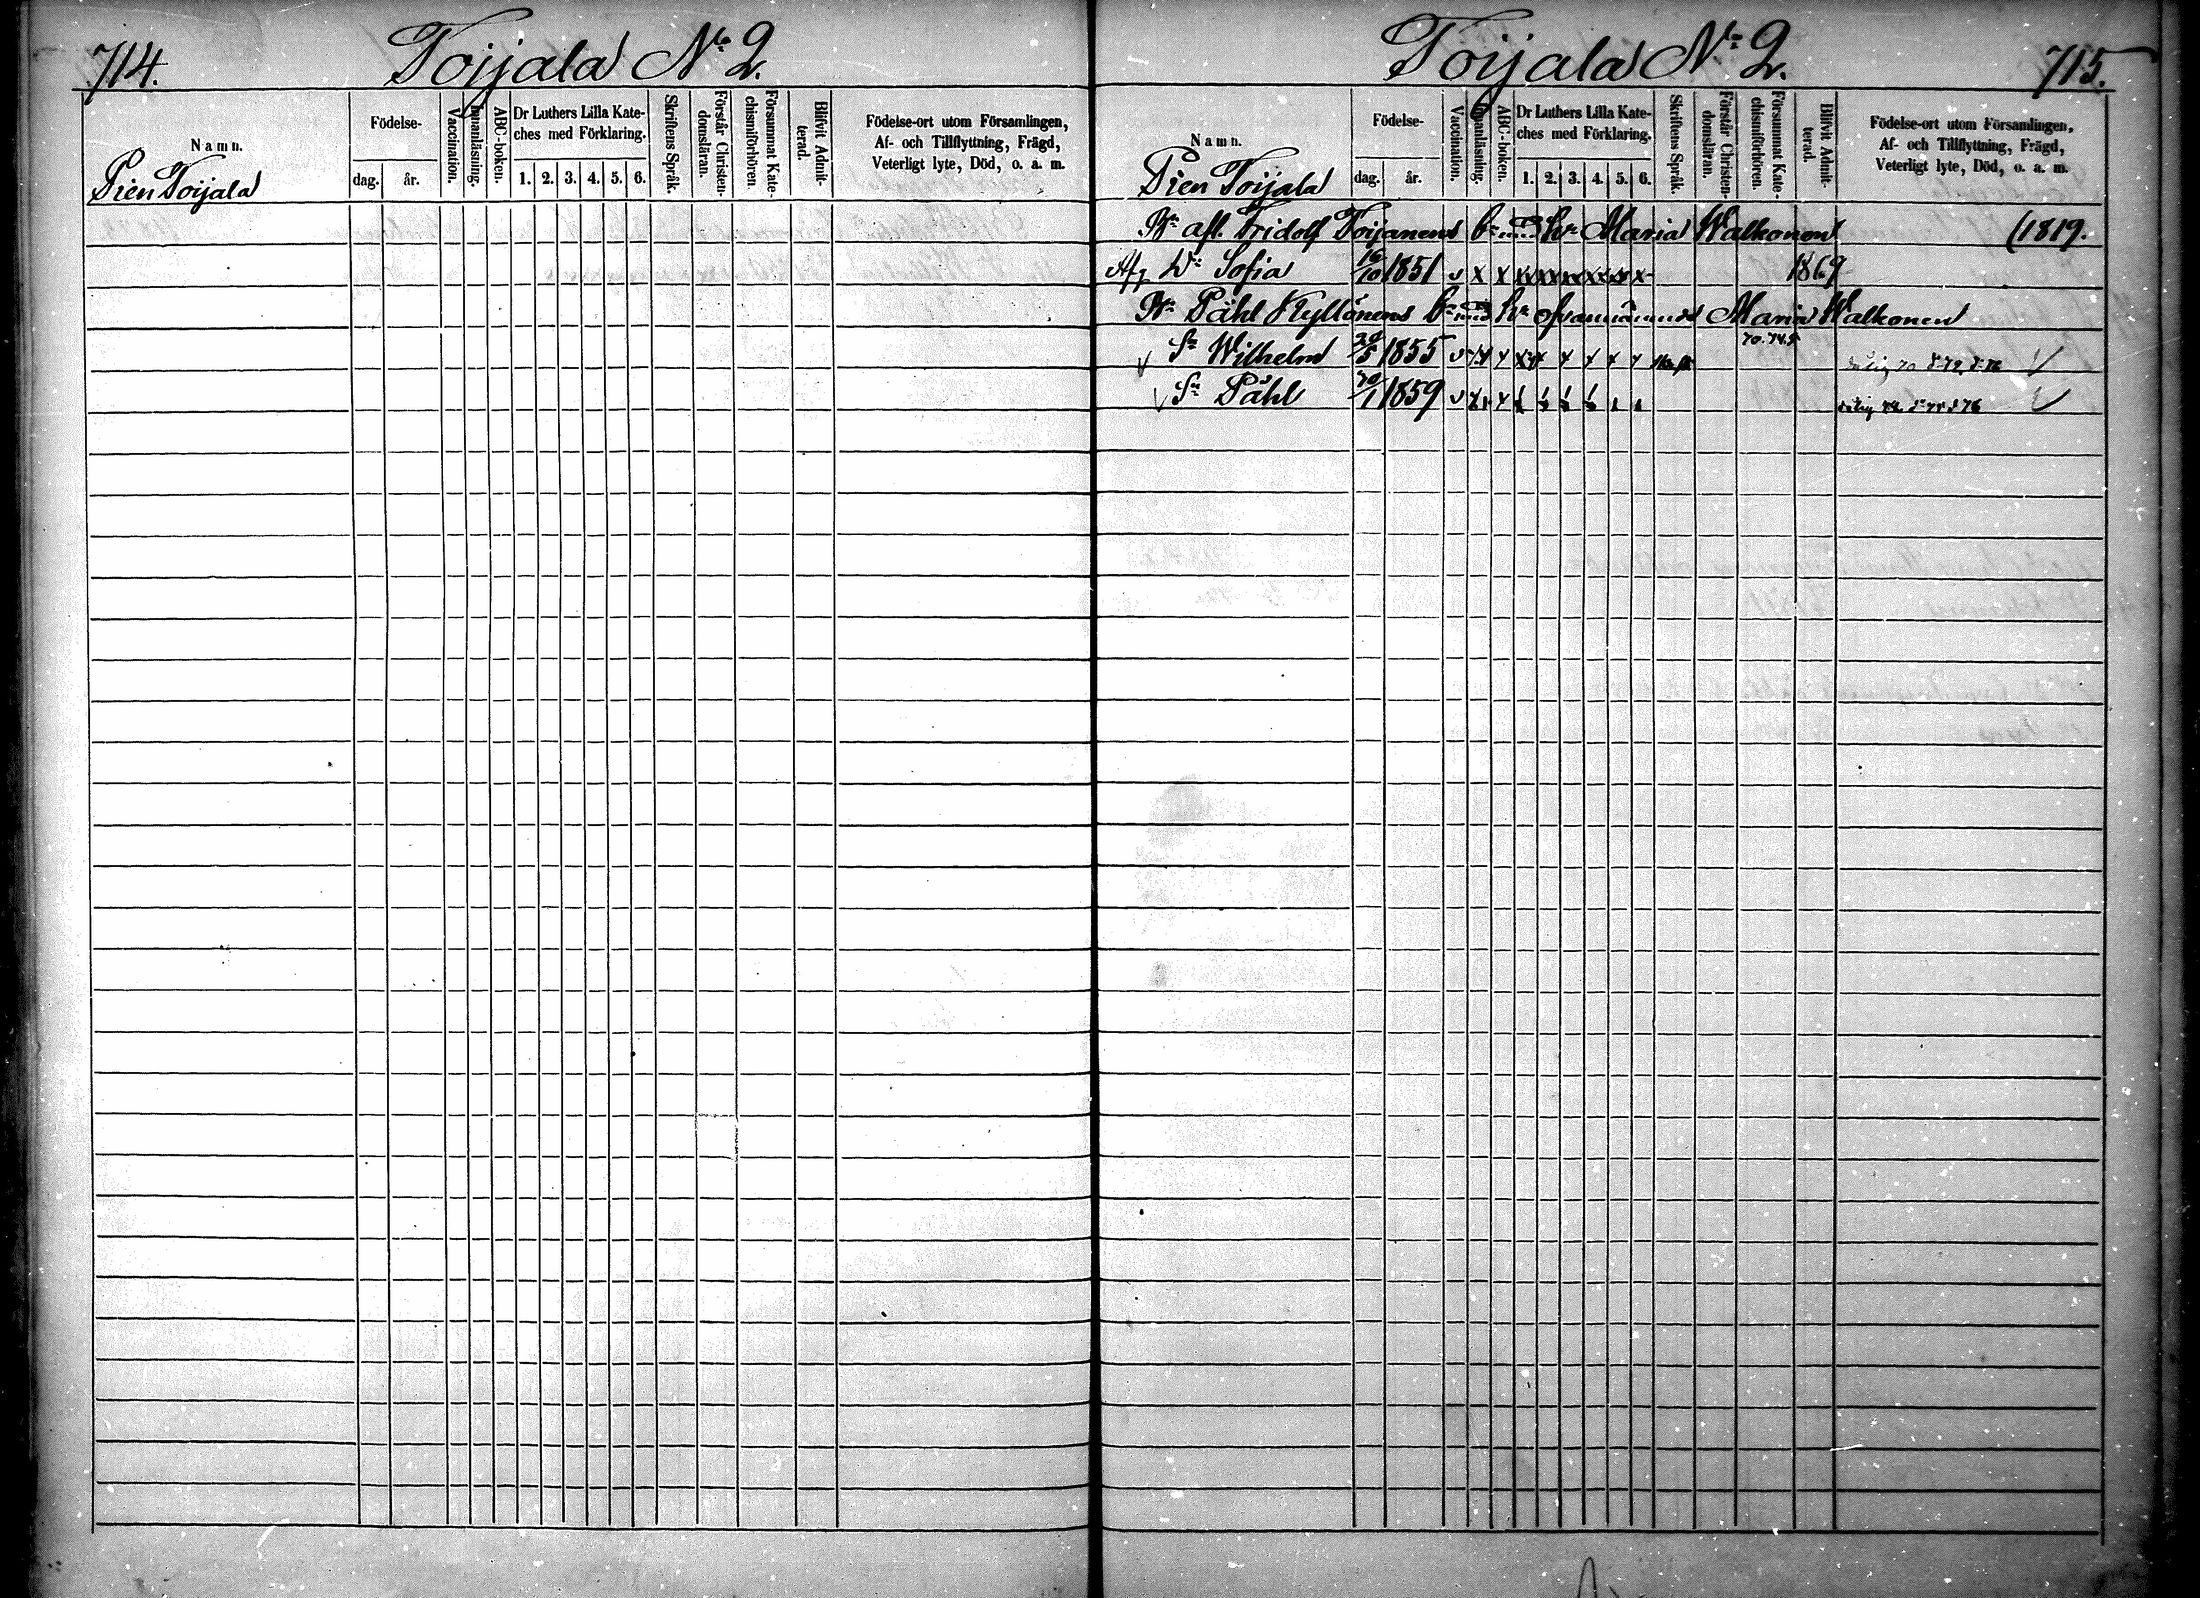 714.
Toijala No 2.
Namn.
Pien Toijala
Födelse-
dag.
år.
Vaccination.
Innanläsning.
ABC-boken.
Dr Luthers Lilla Kate-
ches med Förklaring.
1. 2. 3. 4. 5. 6.
Skriftens Språk.
Förstår Christen-
domsläran.
Försummat Kate-
chismiförhören.
Blifvit Admit-
terad.
Födelse-ort utom Församlingen,
Af- och Tillflyttning, Frägd,
Veterligt lyte, Död, o. a. m.
Toijala No 2.
715.
Namn.
Pien Toijala
Födelse-
dag.
år.
Vaccination.
Innanläsning.
ABC-boken.
Dr Luthers Lilla Kate-
ches med Förklaring.
1. 2. 3. 4. 5. 6.
Skriftens Språk.
Förstår Christen-
domsläran.
Försummat Kate-
chismiförhören.
Blifvit Admit-
terad.
Födelse-ort utom Församlingen,
Af- och Tillflyttning, Frägd,
Veterligt lyte, Död, o. a. m.
afl. Fridolf Toijanens b. med h. Maria Walkonen (1819.
Dr Sofia 1851 v x x x x x x x x 1869
Påhl Kyllönens b. med h. ofvannämnde Maria Walkonen
Sn Wilhelm 1855
Sn Påhl 1859